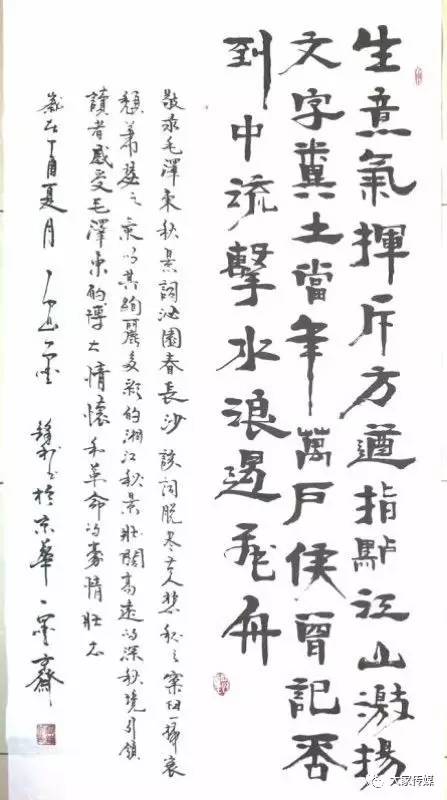 生意氣揮斥方遒指點江山激揚
文字糞土當年萬戶侯曾記否
到中流擊水浪遏飛舟
敬录毛澤東秋景詞沁園春長沙該詞脫盡古人悲秋之窠臼一掃衰
頹蕭瑟之氣以其絢麗多彩的湘江秋景壯闊高遠的深秋境引領
讀者感受毛澤東的博大情懷和革命的豪情壯志
歲在丁酉夏月 於京華一墨齋
大家传媒